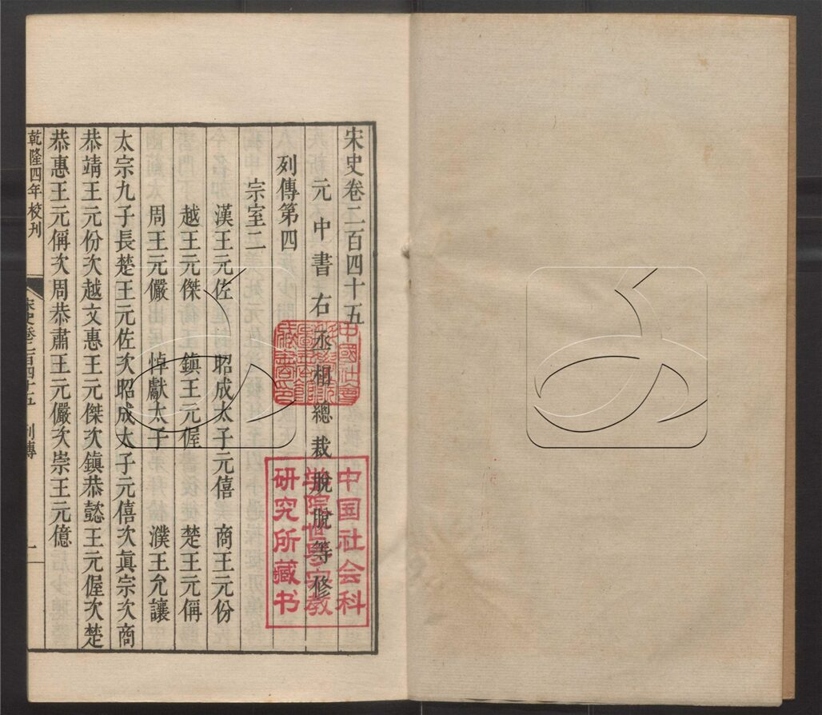 宋史卷二百四十五
元中書右丞相總裁脫脫等修
列傳第四
宗室二
漢王元佐 昭成太子元僖 商王元份
越王元傑 鎮王元偓 楚王元偁
周王元儼 悼獻太子 濮王允讓
太宗九子長楚王元佐次昭成太子元僖次眞宗次商
恭靖王元份次越文惠王元傑次鎮恭懿王元偓次楚
恭惠王元偁次周恭肅王元儼次崇王元億
乾隆四年校刋
宋史卷二百四十五 列傳
一
中國社會
中国社会科
学院世界宗教
研究所藏书